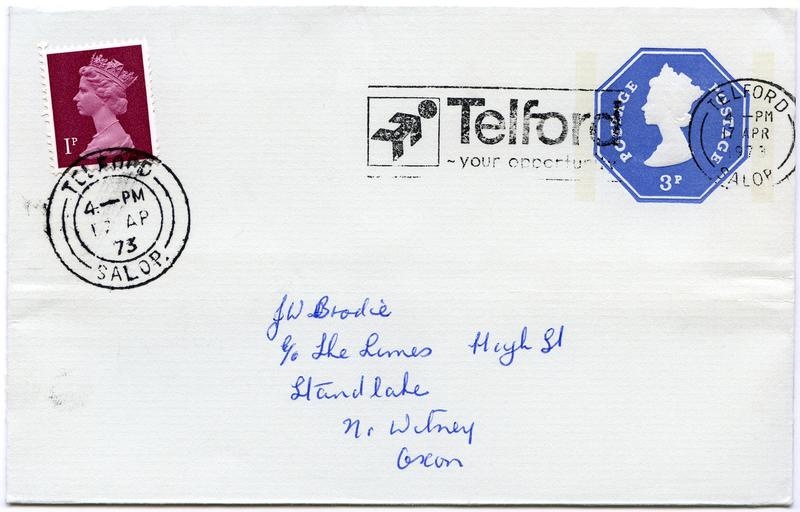 1P
TELFORD
4—PM
17 AP
73
SALOP.
Telford
~your opportunity
POSTAGE POSTAGE
3P
TELFORD
4—PM
17 APR
1973
SALOP
JW Brodie
c/o The Limes High St
Standlake
Nr Witney
Oxon